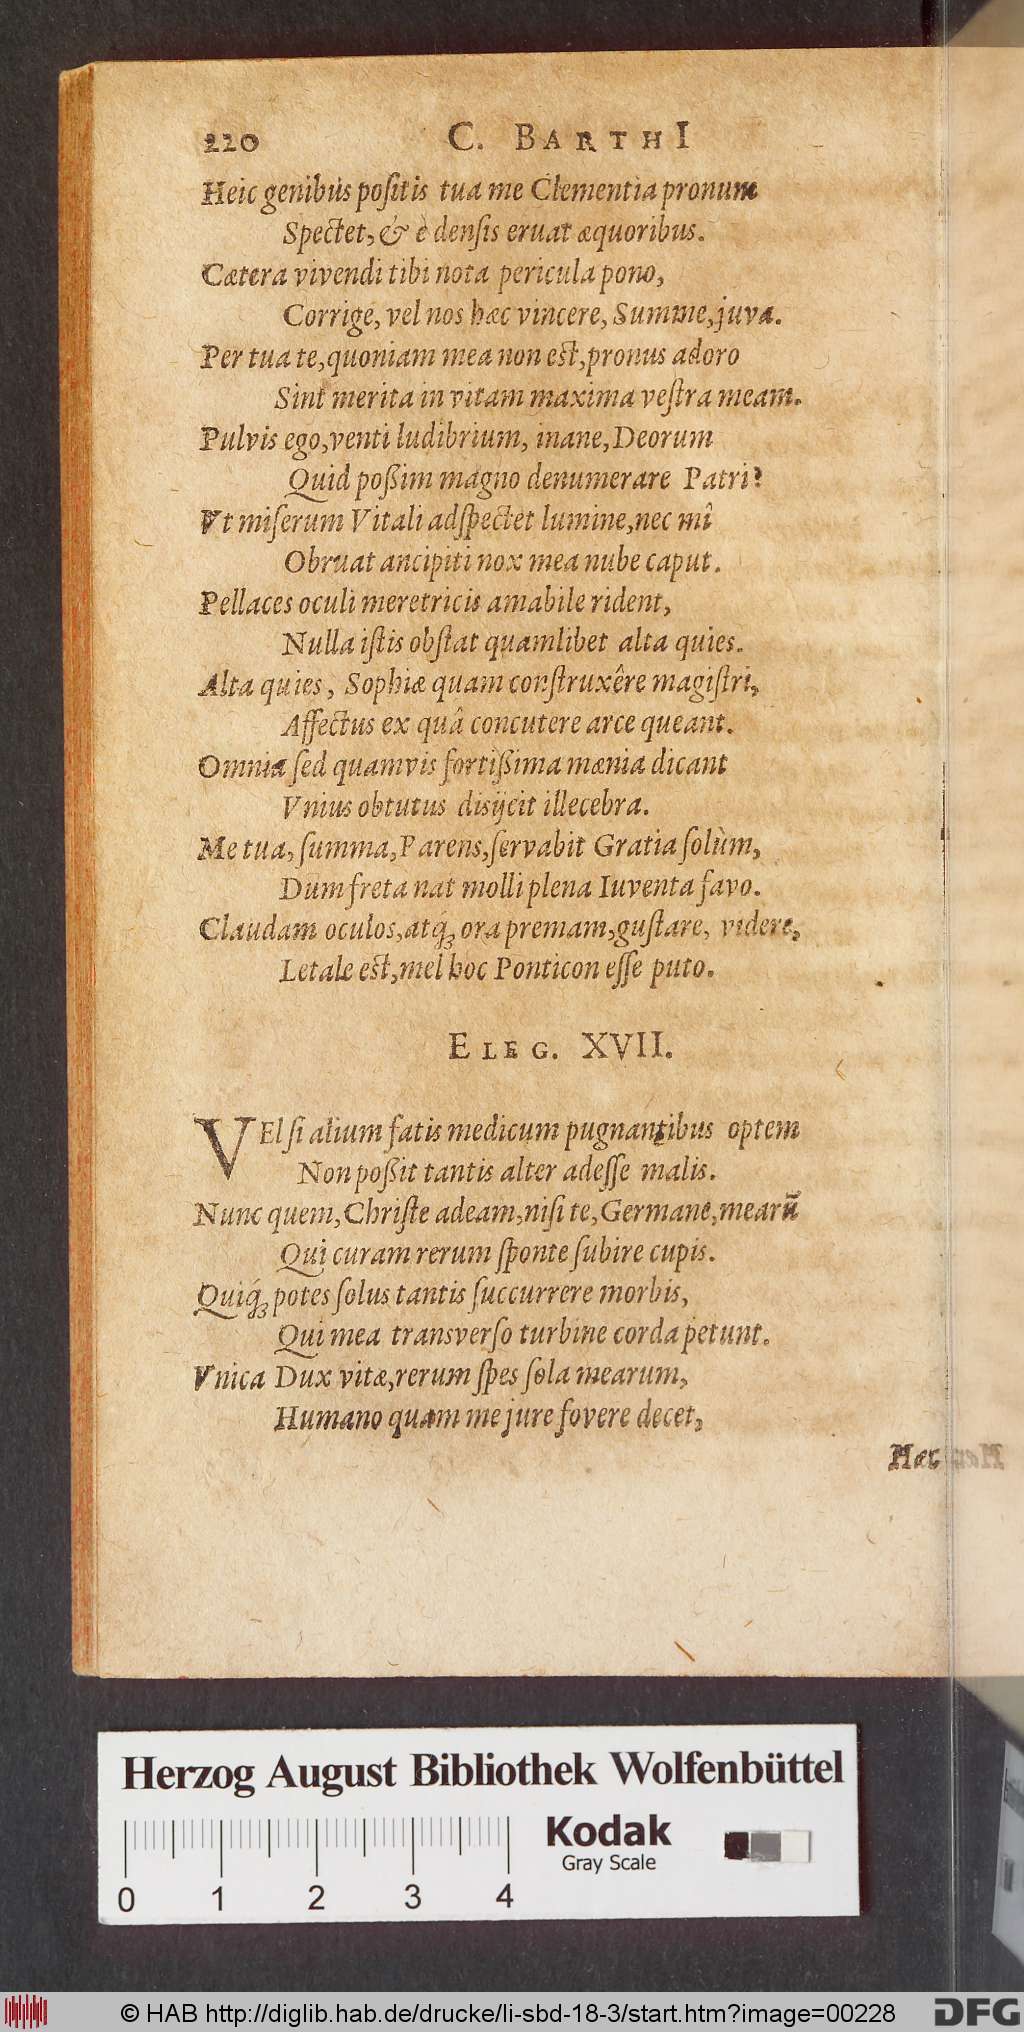 220 C. BARTHI
Heic genibus positis tua me Clementia pronum
Spectet, & è densis eruat æquoribus.
Cætera vivendi tibi nota pericula pono,
Corrige, vel nos hæc vincere, Summe, juva.
Per tua te, quoniam mea non est, pronus adoro
Sint merita in vitam maxima vestra meam.
Pulvis ego, venti ludibrium, inane, Deorum
Quid poßim magno denumerare Patri?
Vt miserum Vitali adspectet lumine, nec mî
Obruat ancipiti nox mea nube caput.
Pellaces oculi meretricis amabile rident,
Nulla istis obstat quamlibet alta quies.
Alta quies, Sophiæ quam construxêre magistri,
Affectus ex quâ concutere arce queant.
Omnia sed quamvis fortißima mœnia dicant
Vnius obtutus disijcit illecebra.
Me tua, summa, Parens, servabit Gratia solùm,
Dum freta nat molli plena Iuventa favo.
Claudam oculos, atq́ꝫ ora premam, gustare, videre,
Letale est, mel hoc Ponticon esse puto.
ELEG. XVII.
VEl si alium fatis medicum pugnantibus optem
Non poßit tantis alter adesse malis.
Nunc quem, Christe adeam, nisi te, Germane, mearū
Qui curam rerum sponte subire cupis.
Quiq́ꝫ potes solus tantis succurrere morbis,
Qui mea transverso turbine corda petunt.
Vnica Dux vitæ, rerum spes sola mearum,
Humano quam me jure fovere decet,
Hæc
Herzog August Bibliothek Wolfenbüttel
Kodak
Gray Scale
0 1 2 3 4
© HAB http://diglib.hab.de/drucke/li-sbd-18-3/start.htm?image=00228
DFG